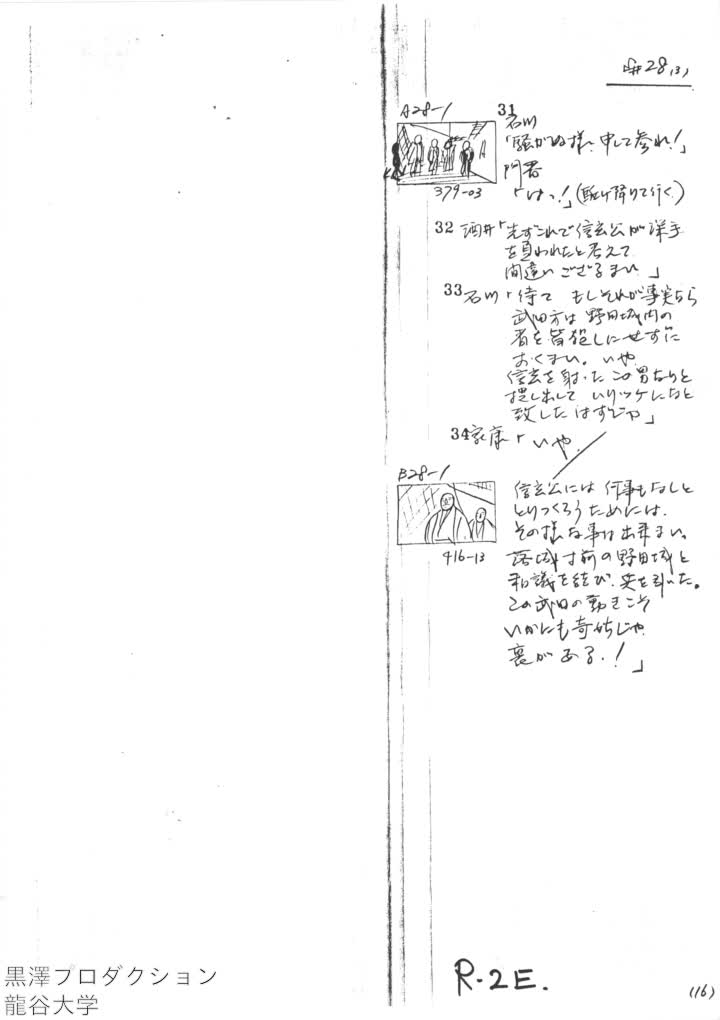 #28(3)
A28-1
31
石川
「騒がぬ様、申して参れ!」
門番
「はっ!」(駈け降りて行く)
379-03
32 酒井「先ずこれで信玄公が深手
を負われたと考えて
間違いござるまい」
33 石川「待て もしそれが事実なら
武田方は野田城内の
者を皆殺しにせずに
おくまい。いや、
信玄を射った この男なりと
捜し出して はりツケになと
致したはずじゃ」
34 家康「いや、
B28-1
416-13
信玄公には 何事もなしと
とりつくろうためには、
その様な事は出来まい。
落城寸前の野田城と
和議を結び、兵を引いた。
この武田の動きこそ
いかにも奇妙じゃ
裏がある、!」
R-2E.
(16)
黒澤プロダクション
龍谷大学